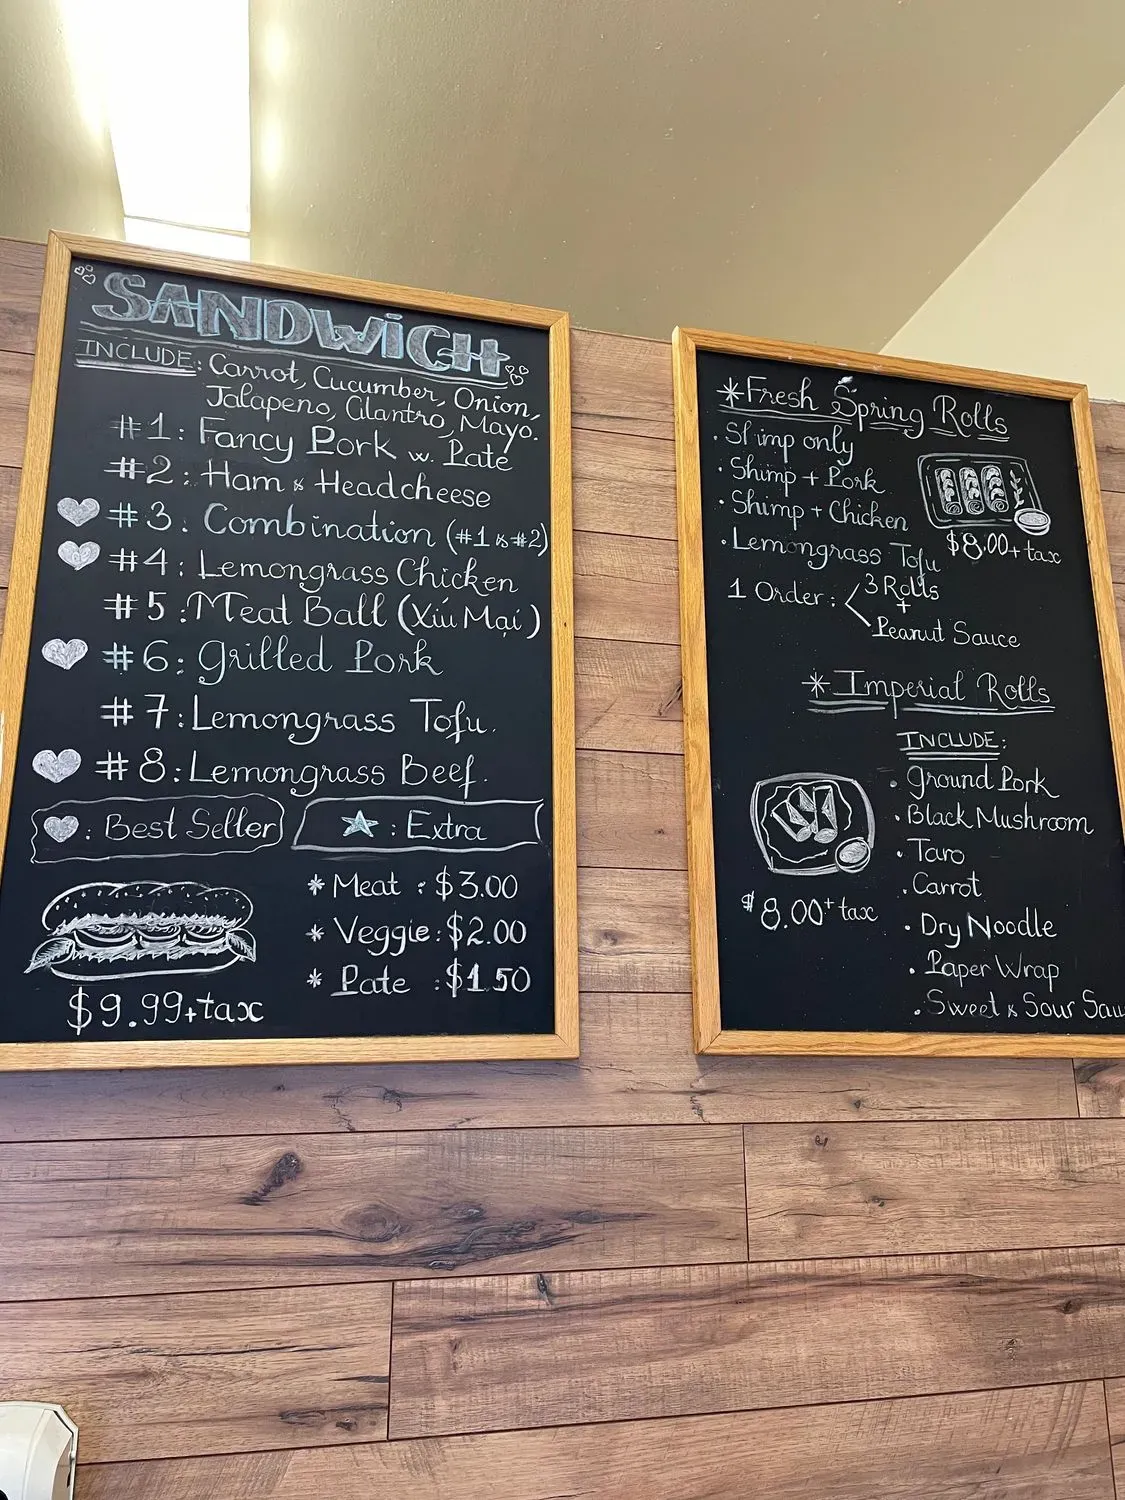 SANDWiCH
INCLUDE: Carrot, Cucumber, Onion,
Jalapeno, Cilantro, Mayo.
#1: Fancy Pork w. Pate
#2: Ham & Headcheese
#3. Combination (#1 & #2)
#4: Lemongrass Chicken
#5: Meat Ball (Xíu Mại)
#6: Grilled Pork
#7: Lemongrass Tofu.
#8: Lemongrass Beef.
: Best Seller
: Extra
* Meat : $3.00
* Veggie: $2.00
* Pate : $1.50
$9.99+tax
*Fresh Spring Rolls
. Sh imp only
. Shimp + Pork
. Shimp + Chicken
. Lemongrass Tofu
$8.00+tax
1 Order: 3 Rolls
+
Peanut Sauce
* Imperial Rolls
INCLUDE:
. Ground Pork
. Black Mushroom
. Taro
. Carrot
. Dry Noodle
. Paper Wrap
. Sweet & Sour Sau
$8.00+tax